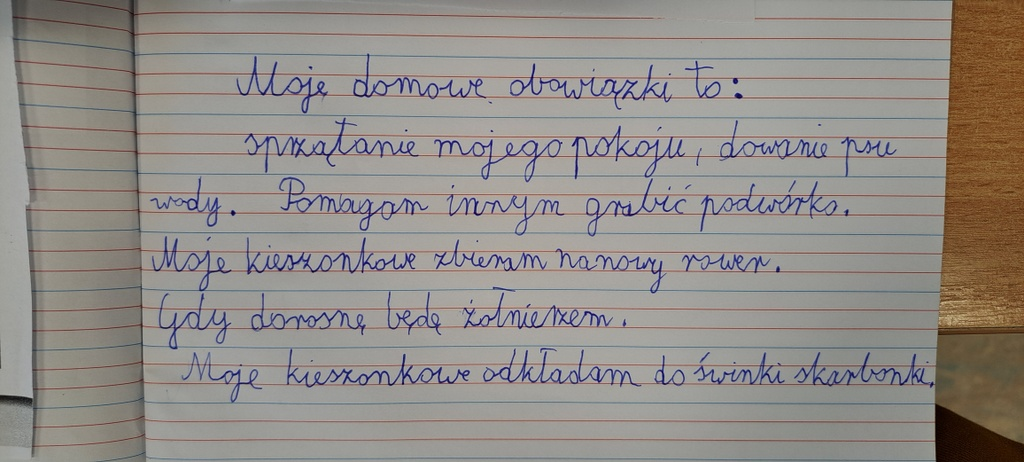 Moje domowe obowiązki to:
sprzątanie mojego pokoju, dawanie psu
wody. Pomagam innym grabić podwórko.
Moje kieszonkowe zbieram na nowy rower.
Gdy dorosnę będę żołnierzem.
Moje kieszonkowe odkładam do świnki skarbonki.